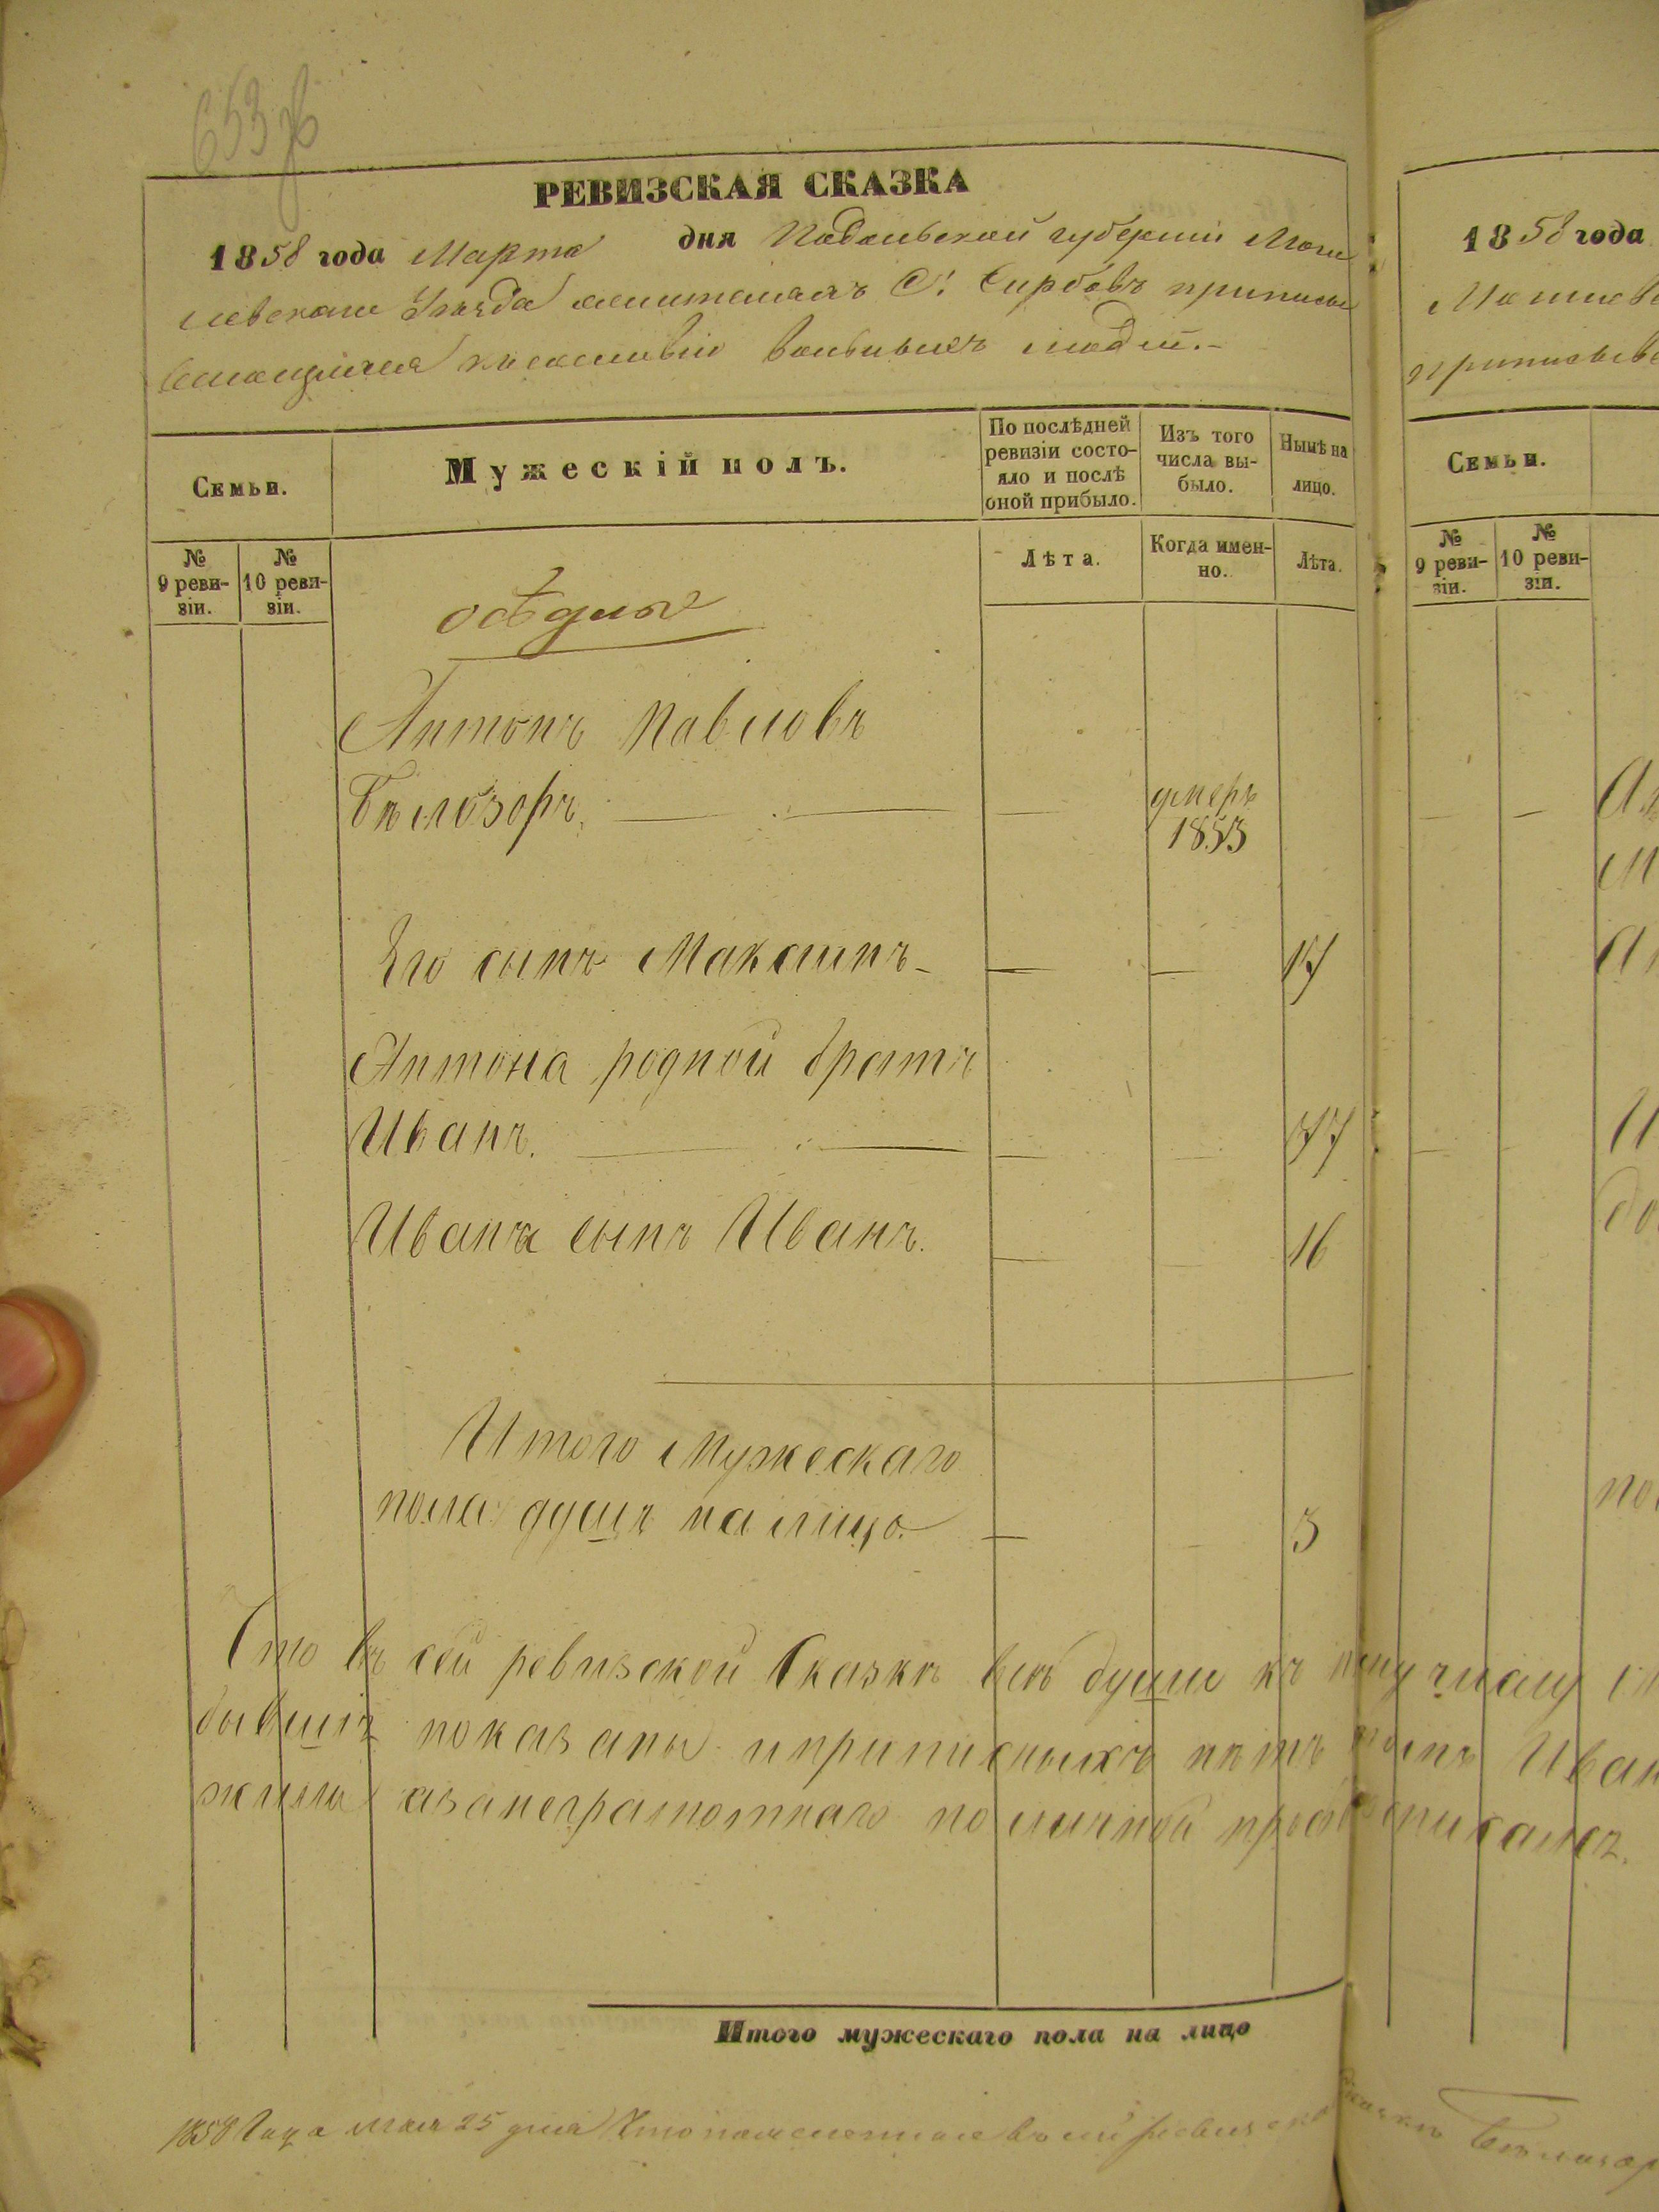 653 об
РЕВИЗСКАЯ СКАЗКА
1858 года Марта дня Подольской губерніи Моги
левскаго Уѣзда жителямъ С. Сирбовъ приписы
вающихся къ сословію вольныхъ людей.-
Семьи.
Мужескій полъ.
По послѣдней ревизіи состо-яло и послѣ оной прибыло.
Изъ того числа вы-было.
Нынѣ на лицо.
№ 9 реви-зіи.
№ 10 реви-зіи.
Лѣта.
Когда имен-но.
Лѣта.
осѣдлы
Антонъ Павловъ
Бѣлозоръ. — — — умеръ 1853
Его сынъ Максимъ - — — 17
Антона родной братъ
Иванъ. — — — — 77
Ивана сынъ Иванъ. — — 16
Итого Мужескаго
пола душъ на лицо. — — 3
Что въ сей ревизской Сказкѣ всѣ души къ числу
бывшія показаны и приписныхъ нѣтъ Иван
а за неграмотнаго по личной прозбѣ списалъ.
Итого мужескаго пола на лицо
1858 Года Мая 25 дня Что помененное в сей ревизской
1858 года
приписыва
Семьи.
№ 9 реви-зіи.
№ 10 реви-зіи.